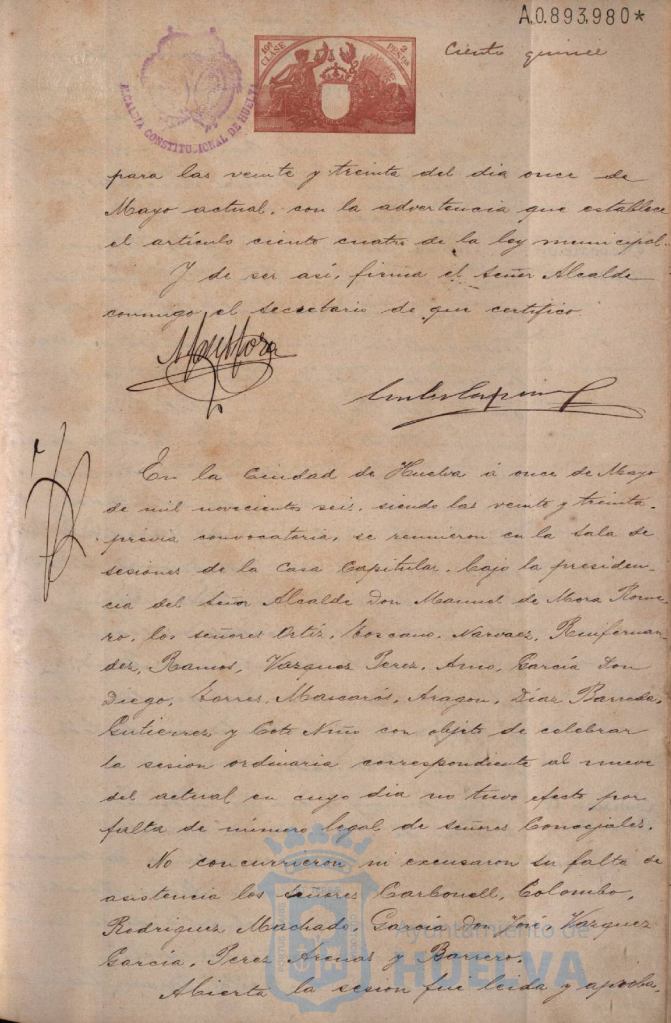 A.0.893.980*
Ciento quince
10ª CLASE 2 PESETAS
ALCALDIA CONSTITUCIONAL DE HUELVA
para las veinte y treinta del dia once de
Mayo actual, con la advertencia que establece
el artículo ciento cuatro de la ley municipal.
Y de ser asi, firma el Señor Alcalde
conmigo el secretario de que certifico.
En la Ciudad de Huelva á once de Mayo
de mil novecientos seis, siendo las veinte y treinta,
prévia convocatoria, se reunieron en la Sala de
sesiones de la Casa Capitular, bajo la presiden-
cia del Señor Alcalde Don Manuel de Mora Rome-
ro, los señores Ortiz, Toscano, Narvaez, Ruifernan-
dez, Ramos, Vazquez Perez, Amo, García Don
Diego, Torres, Mascarós, Aragon, Díaz Barreda,
Gutierrez y Coto Niño con objeto de celebrar
la sesion ordinaria correspondiente al nueve
del actual en cuyo dia no tuvo efecto por
falta de número legal de señores Concejales.
No concurrieron ni excusaron su falta de
asistencia los señores Carbonell, Colombo,
Rodriguez Machado, García Don José, Vázquez
García, Perez Arenas y Barrero.
Abierta la sesion fué leida y aproba-
Ayuntamiento de
HUELVA